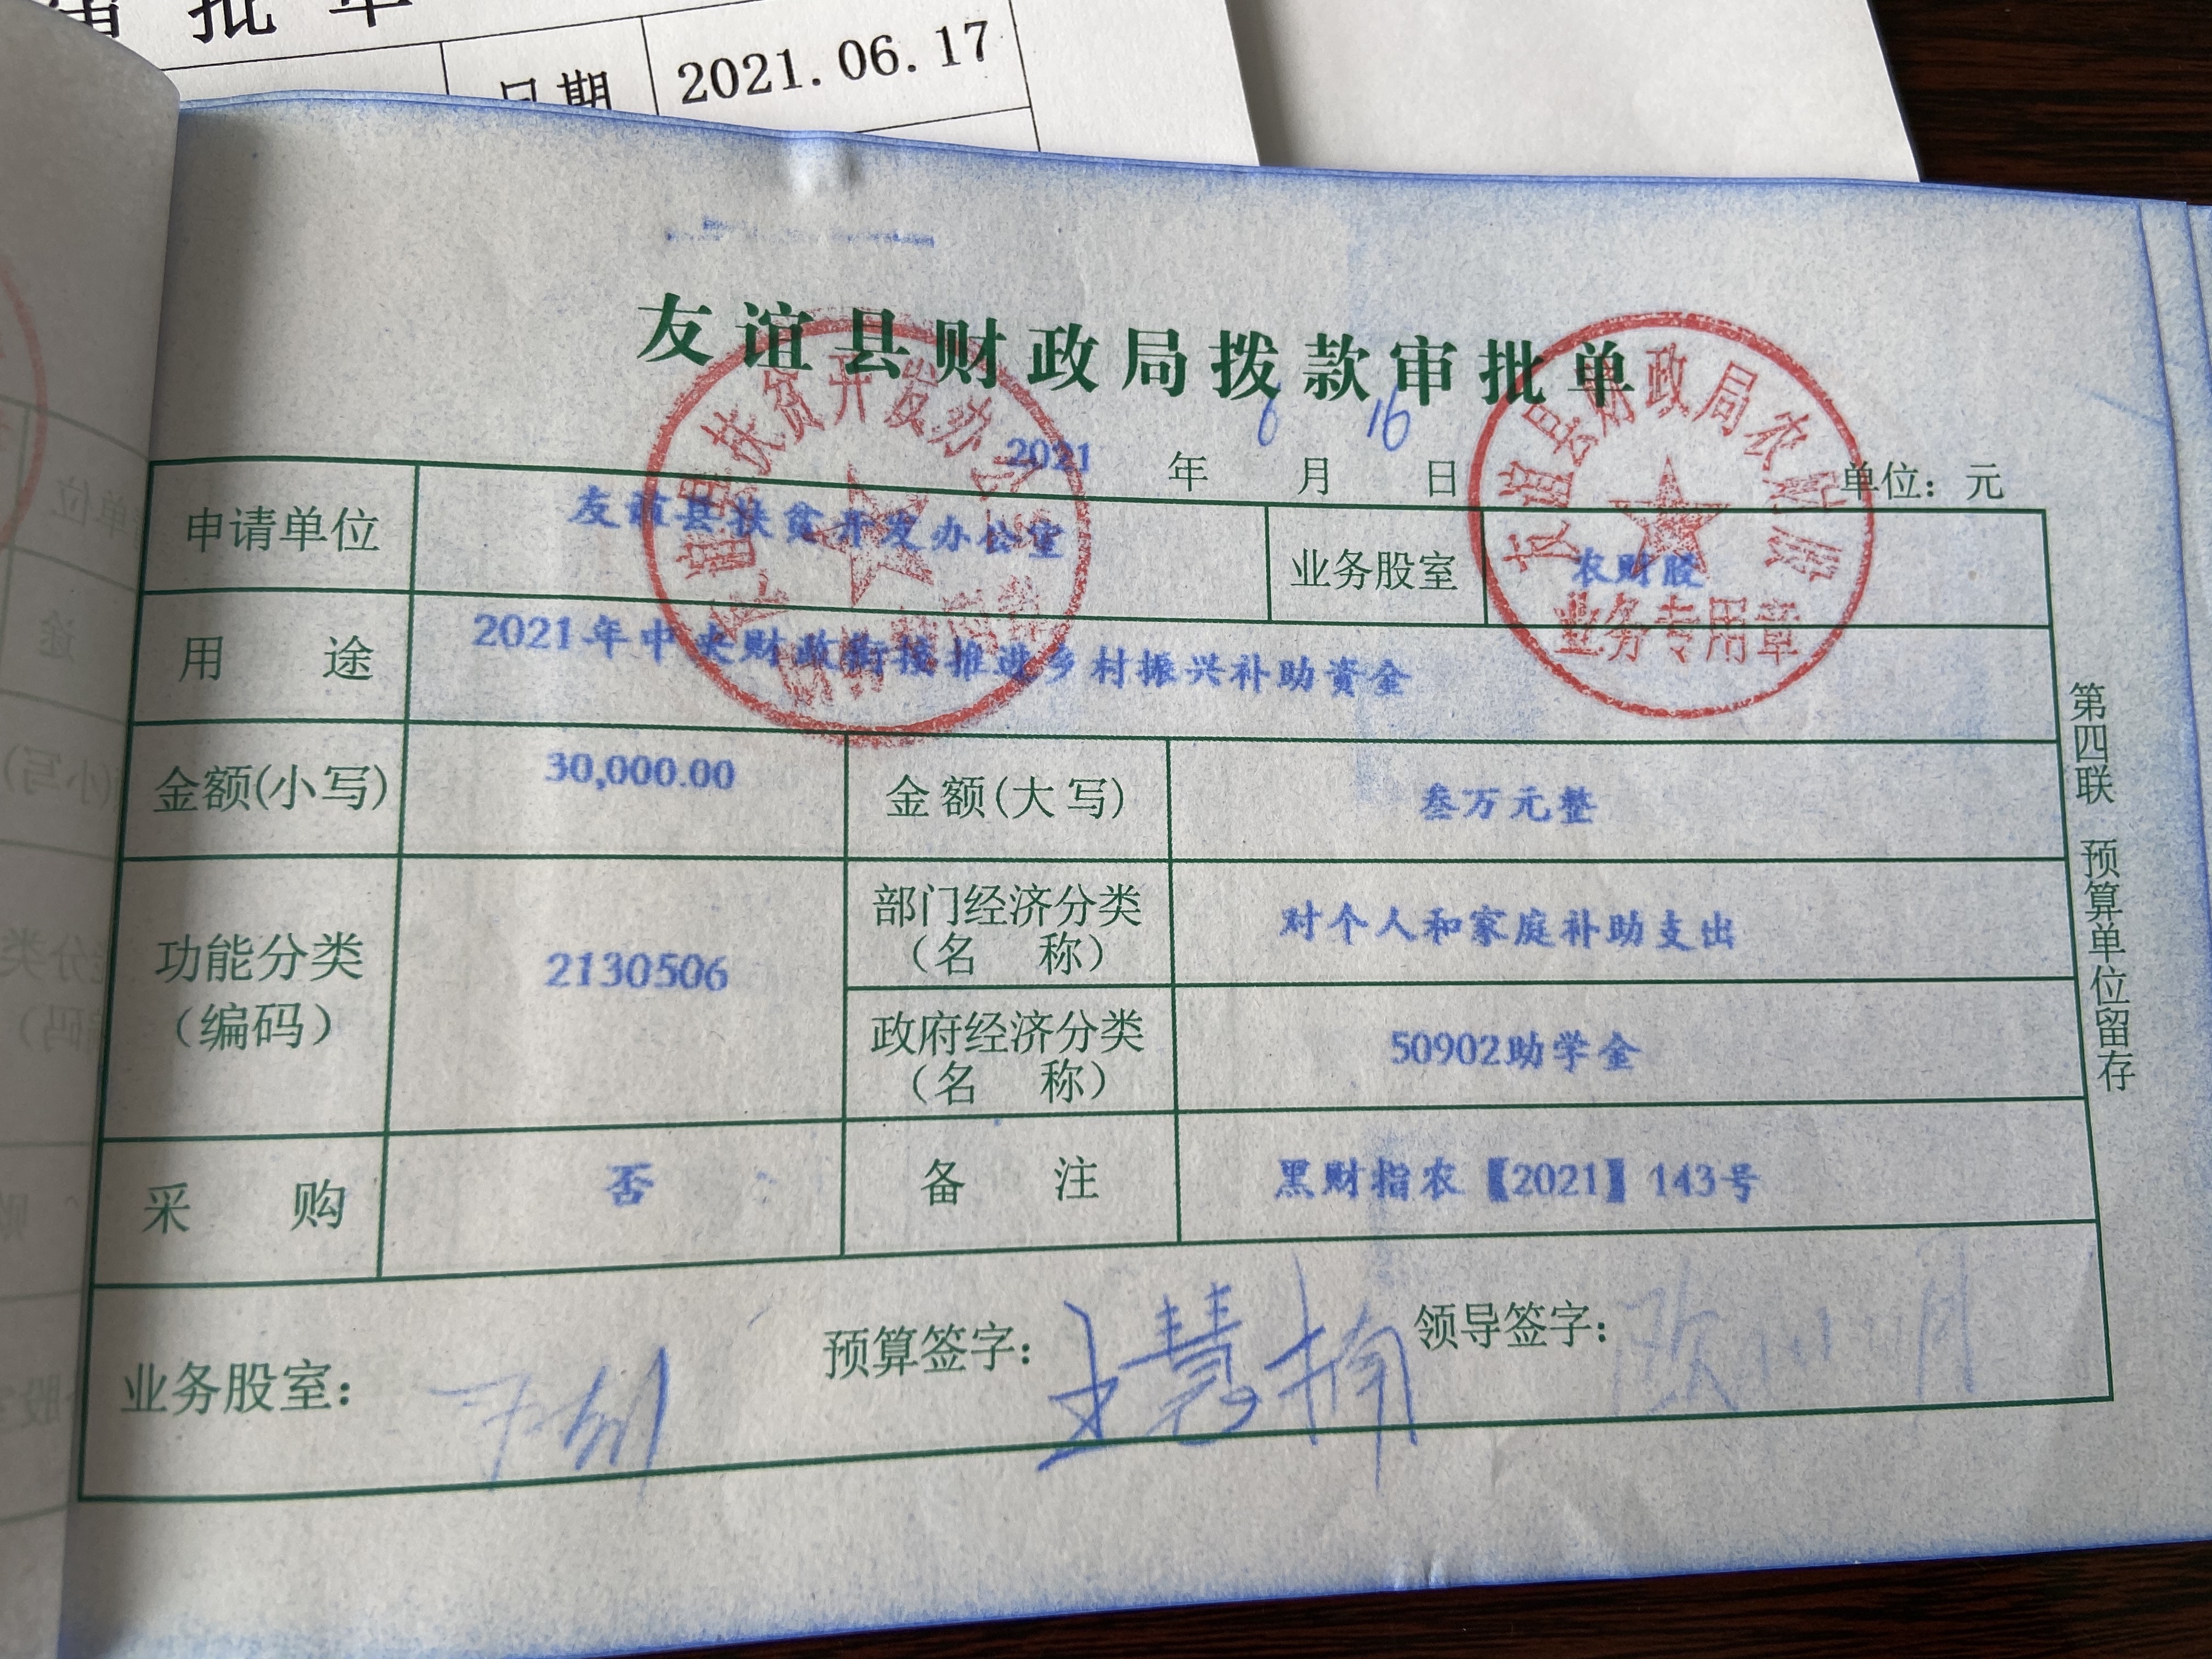 批单
日期 2021.06.17
友谊县财政局拨款审批单
2021 年 6 月 16 日 单位：元
申请单位 友谊县扶贫开发办公室 业务股室 农财股
用 途 2021年中央财政衔接推进乡村振兴补助资金
金额(小写) 30,000.00 金额(大写) 叁万元整
功能分类（编码） 2130506 部门经济分类（名 称） 对个人和家庭补助支出
政府经济分类（名 称） 50902助学金
采 购 否 备 注 黑财指农【2021】143号
业务股室： 预算签字：王慧楠 领导签字：
第四联 预算单位留存
友谊县扶贫开发办公室
友谊县财政局农财股
业务专用章